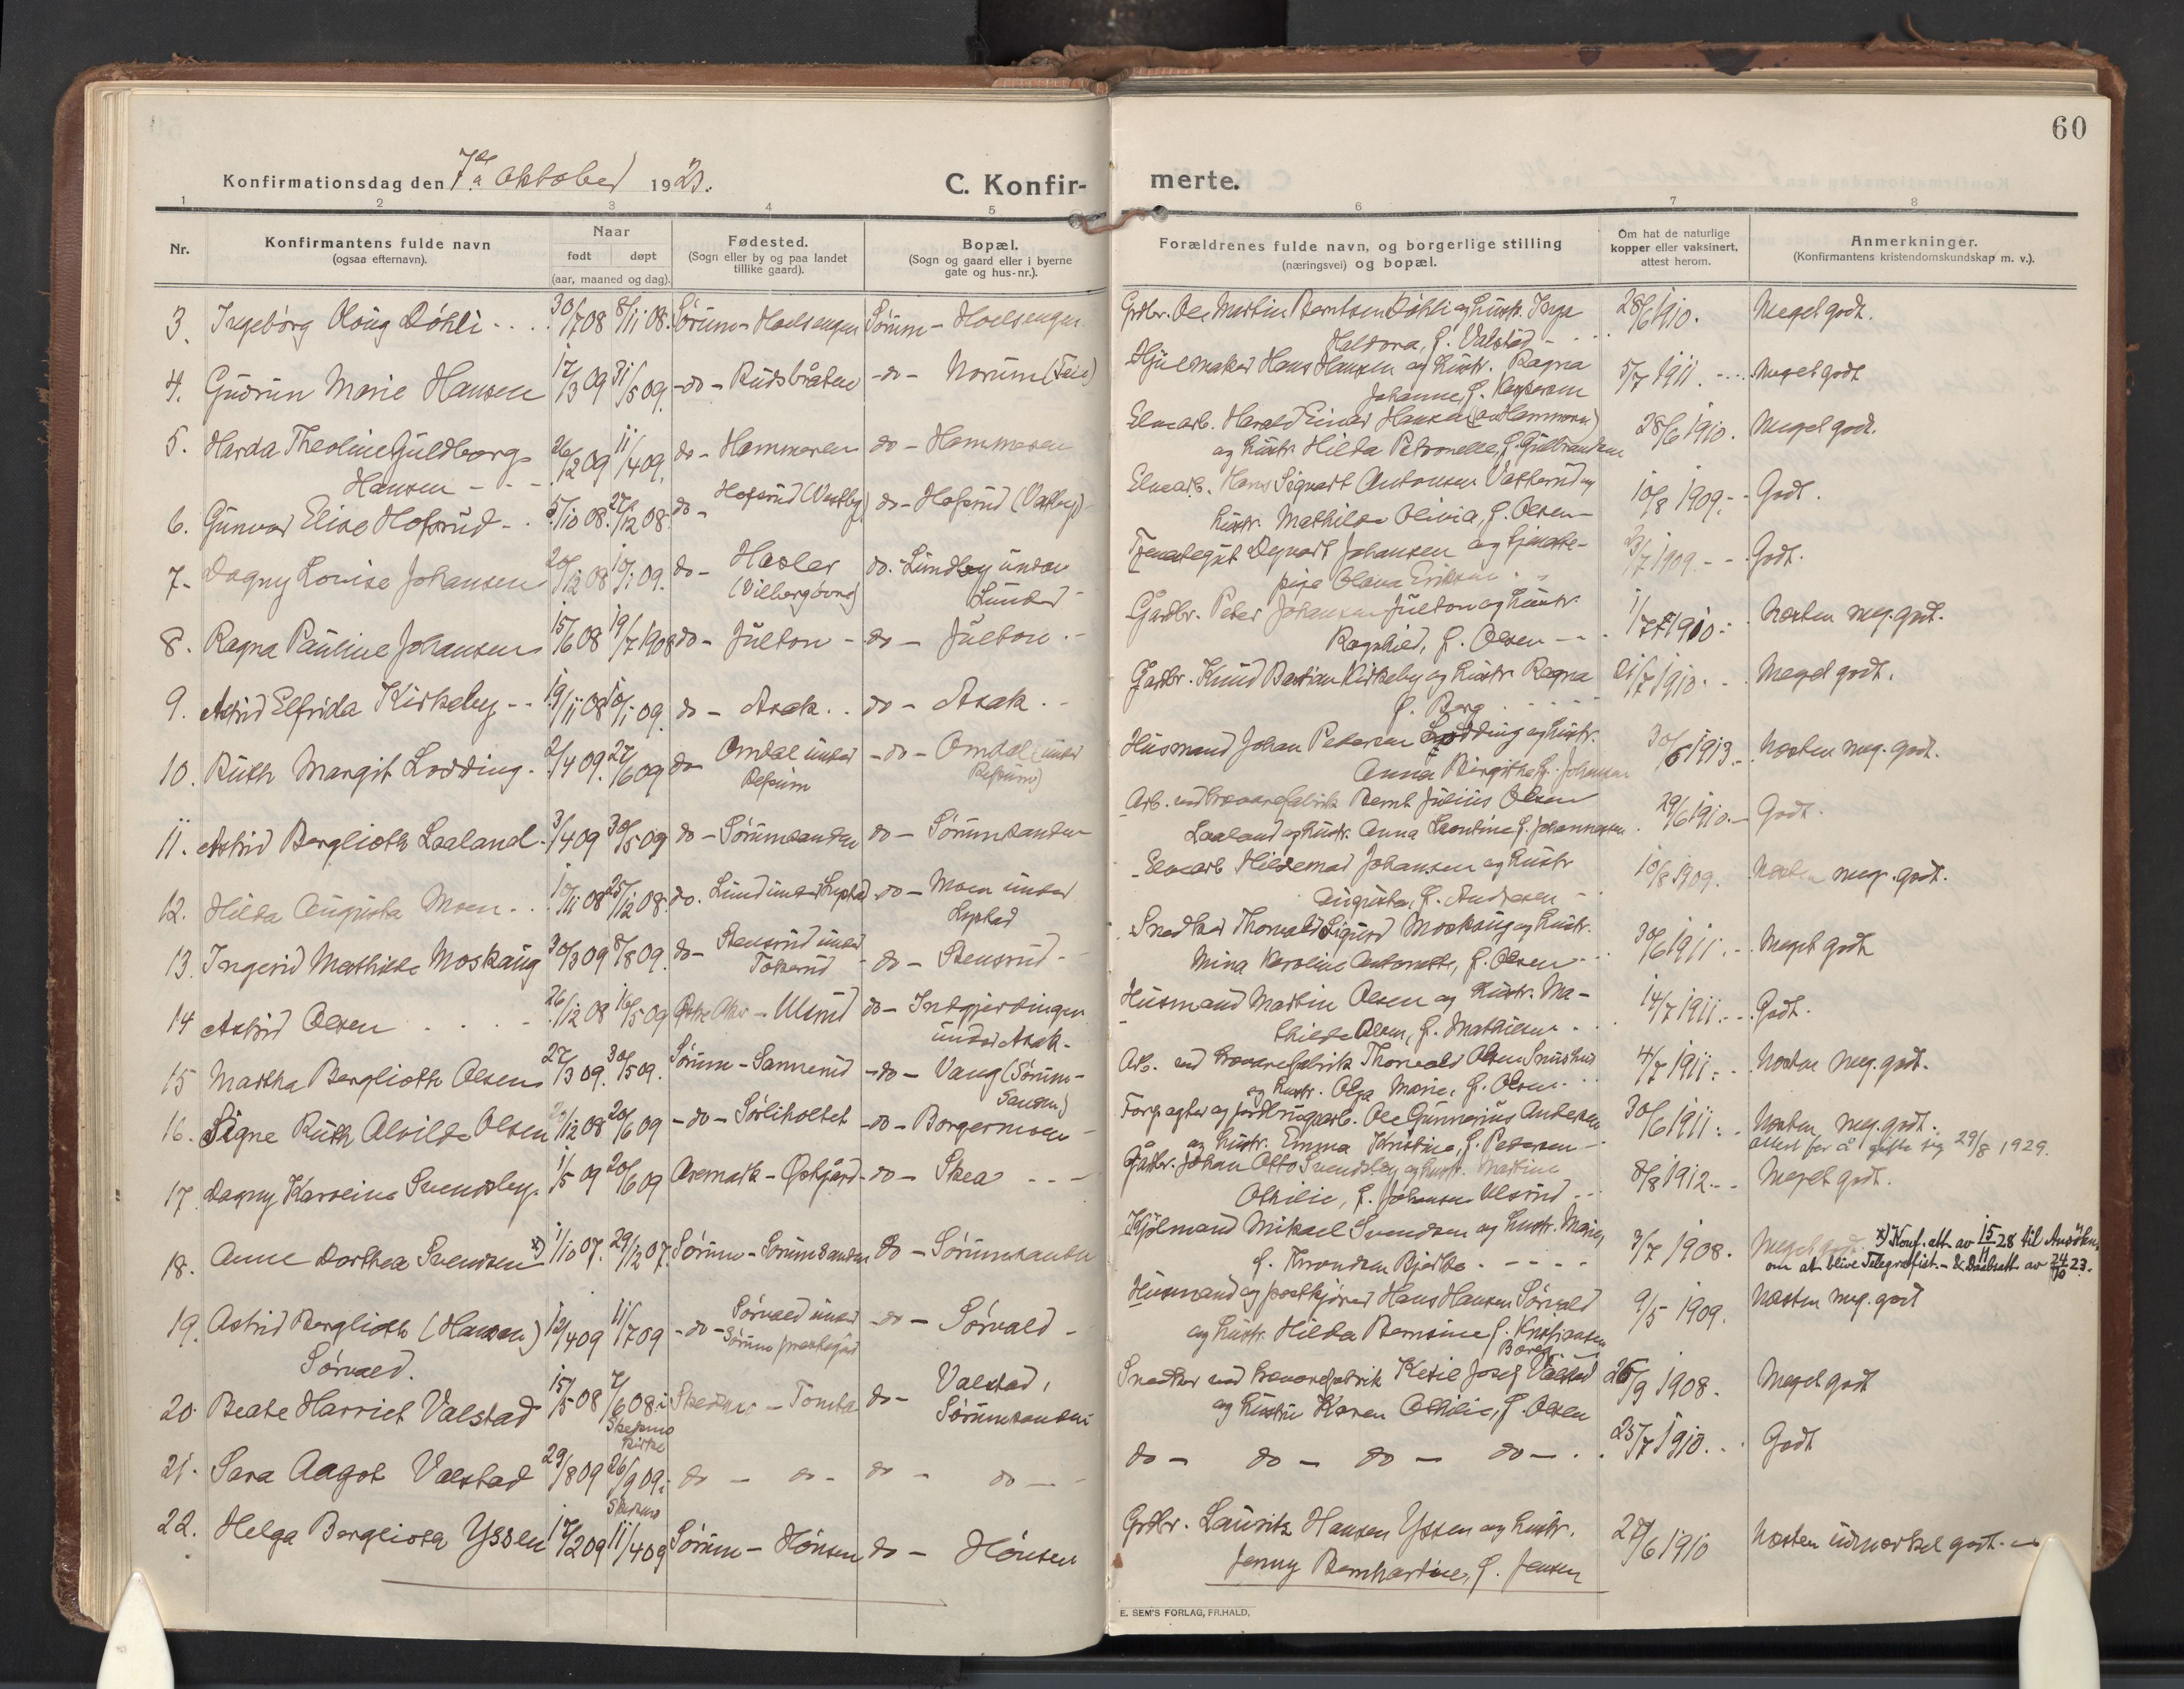 60
Konfirmationsdag den 7de Oktober 1923.
C. Konfirmerte.
1 2 3 4 5 6 7 8
Nr.
Konfirmantens fulde navn
(ogsaa efternavn).
Naar
født døpt
(aar, maaned og dag).
Fødested.
(Sogn eller by og paa landet
tillike gaard).
Bopæl.
(Sogn og gaard eller i byerne
gate og hus-nr.).
Forældrenes fulde navn, og borgerlige stilling
(næringsvei) og bopæl.
Om hat de naturlige
kopper eller vaksinert,
attest herom.
Anmerkninger.
(Konfirmantens kristendomskundskap m. v.).
3. Ingeborg Haug Døhli 30/7 08 8/11 08 Sørum - Holsengen Sørum - Holsengen
Grdbr. Ole Martin Berntsen Døhli og hustr. Inga
Haldora, f. Valstad 28/6 1910. Meget godt.
4. Gudrun Marie Hansen 17/3 09 31/5 09 -do- Rudsbråten -do- Norum (Feie)
Hjulmaker Hans Hansen og hustr. Ragna
Johanne, f. Kaspersen 5/7 1911. Meget godt
5. Harda Theoline Guldborg
Hansen 26/2 09 11/4 09. do - Hammeren do - Hammeren
Elvearb. Harald Einar Hansen (av Hammeren)
og hustr. Hilda Petronelle, f. Gulbrandsen 28/6 1910. Meget godt.
6. Gunvor Elise Hofsrud 5/10 08. 27/12 08. do - Hofsrud (Vestby) do - Hofsrud (Vestby)
Elvearb. Hans Sigvart Antonsen Vatterud og
hustr. Mathilde Olivia, f. Olsen 10/8 1909. Godt.
7. Dagny Lovise Johansen 20/12 08 10/1 09. do - Hasler
(Vilbergøvre) do. Lundby under
Lunder
Tjenestegut Degnart Johansen og tjeneste-
pige Olava Eriksen 23/7 1909. Godt.
8. Ragna Pauline Johansen 15/6 08 19/7 1908 do - Julton - do - Julton
Gardbr. Peter Johansen Julton og hustr.
Ragnhild, f. Olsen 1/7 1910. Næsten meg. godt.
9. Astrid Elfrida Kirkeby 19/11 08 10/1 09. do - Asak do - Asak
Gardbr. Knud Bastian Kirkeby og hustr. Ragna
f. Berg 21/7 1910. Meget godt.
10. Ruth Margit Lodding 2/4 09. 27/6 09 do Omdal under
Refsum -do- Omdal (under
Refsum)
Husmand Johan Petersen Lodding og hustr.
Anna Birgithe f. Johansen 30/6 1913. Næsten meg. godt.
11. Astrid Berglioth Laaland 3/4 09 30/5 09 do - Sørumsanden do - Sørumsanden
Arb. ved trævarefabrik Bernt Julius Olsen
Laaland og hustr. Anna Leontine f. Johannessen 29/6 1910. Godt.
12. Hilda Augusta Moen 10/11 08 25/12 08. do. Lund under Lystad do - Moen under
Lystad
Elvearb Hildemar Johansen og hustr
Augusta, f. Andersen 10/8 1909. Næsten meg. godt.
13. Ingerid Mathilde Moskaug 30/3 09 8/8 09. do - Stensrud under
Tokerud do - Stensrud
Snedker Thorvald Sigurd Moskaug og hustr.
Mina Karoline Antonette, f. Olsen 30/6 1911. Meget godt
14 Astrid Olsen 26/12 08 16/5 09 Østre Aker - Ulsrud do - Indgjerdingen
under Asak.
Husmand Martin Olsen og hustr. Ma-
thilde Olsen, f. Mathisen 14/7 1911. Godt.
15 Martha Berglioth Olsen 27/3 09. 30/5 09. Sørum - Sannerud -do- Vang (Sørum-
Sanden)
Arb. ved trævarefabrik Thorvald Olsen Snushus
og hustr. Olga Marie, f. Olsen 4/7 1911. Næsten meg. godt.
16. Signe Ruth Alvilde Olsen 20/12 08 20/6 09 -do- Sørliholtet -do- Borgermoen
Forpagter og jordbrugsarb. Ole Gunnerius Andersen
og hustr. Emma Kristine, f. Petersen 30/6 1911. Næsten meg. godt.
attest for å gifte sig 29/8 1929.
17 Dagny Karoline Svendsby 1/5 09 20/6 09 Aremark - Østgård do - Skea
Gardbr. Johan Otto Svendsby og hustr. Martine
Othilie, f. Johansen Ulsrud 8/8 1912. Meget godt.
18. Anne Dorthea Svendsen x) 1/10 07. 29/12 07. Sørum - Sørumsanden do - Sørumsanden
Kjølmand Mikael Svendsen og hustr. Marie,
f. Knoudsen Bjerke 3/7 1908. Meget godt. x) Konf. att av 15/11 28 til Ansökn
om at blive Telegrafist. - & Daabsatt av 24/10 23.
19. Astrid Berglioth (Hansen)
Sørvald. 12/4 09 11/7 09 -do- Sørvald under
Sørum prestegård -do- Sørvald
Husmand og postkjører Hans Hansen Sørvald
og hustr. Hilda Bernsine f. Kristiansen
Borg 9/5 1909. Næsten meg. godt
20. Beate Harriet Valstad 15/5 08 7/6 08 i
Skedsmo
kirke Skedsmo - Tomta do - Valstad,
Sørumsanden
Snedker ved trævarefabrik Ketil Josef Valstad
og hustru Karen Othilie, f. Olsen 26/9 1908. Meget godt
21. Sara Aagot Valstad 29/8 09 26/9 09 i
Skedsmo do - do - do - do -
do - do - do - do - 25/7 1910. Godt
22. Helga Berglioth Yssen 17/2 09 11/4 09 Sørum - Hønsen do - Hønsen
Grdbr. Lauritz Hansen Yssen og hustr.
Jenny Bernhardine, f. Jensen 27/6 1910 Næsten udmerket godt.
E. SEM'S FORLAG, FR.HALD,